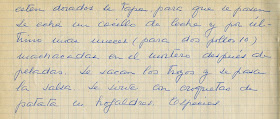 esten dorados se tapan para que se pasen
se echa un cacillo de leche y por úl-
timo unas nueces (para dos pollos 10)
machacadas en el mortero después de
peladas. Se sacan los trozos y se pasa
la salsa. Se sirve con croquetas de
patata u hojaldres.